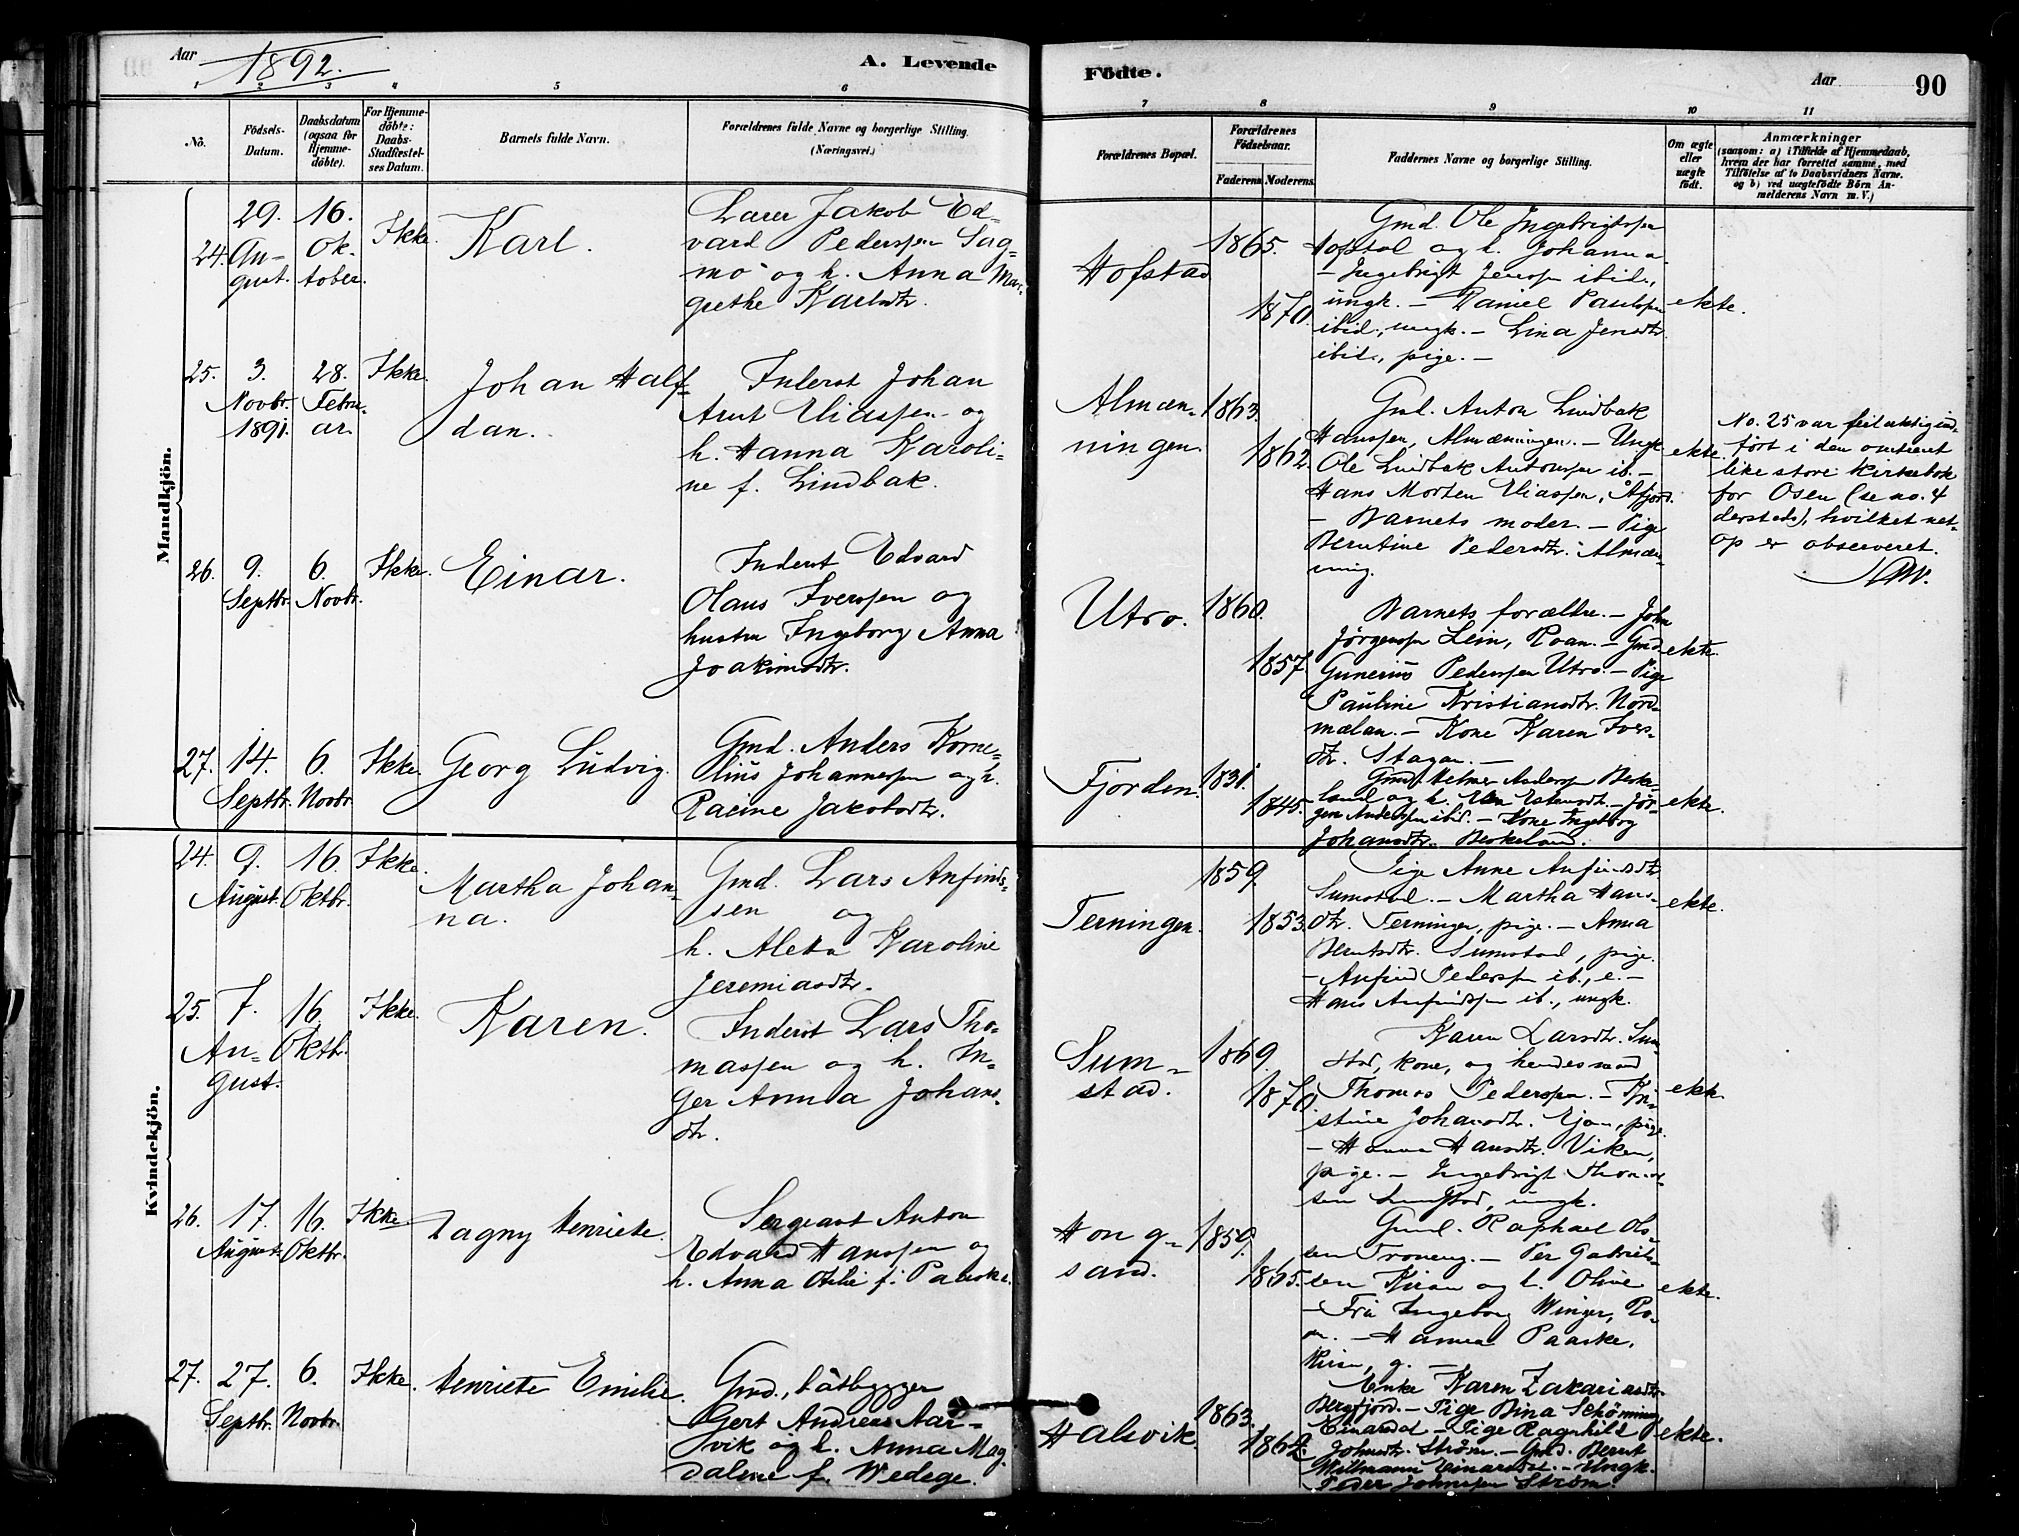 Aar 1892.
A. Levende
Fødte.
Aar
90
1 2 3 4 5 6 7 8 9 10 11
No.
Fødsels-
Datum.
Daabsdatum
(ogsaa for
Hjemme-
døbte).
For Hjemme-
døbte:
Daabs-
Stadfæstel-
ses Datum.
Barnets fulde Navn.
Forældrenes fulde Navne og borgerlige Stilling.
(Næringsvei.)
Forældrenes Bopæl.
Forældrenes
Fødselsaar.
Faderens. Moderens.
Faddernes Navne og borgerlige Stilling.
Om ægte
eller
uægte
født.
Anmærkninger
(saasom: a) i Tilfælde af Hjemmedaab,
hvem der har forrettet samme, med
Tilføielse af to Daabsvidners Navne.
og b) ved uægtefødte Børn An-
melderens Navn m. V.)
Mandkjön.
24.
29.
Au-
gust.
16.
Ok-
tober.
Ikke.
Karl.
Lærer Jakob Ed-
vard Pederssen Sag-
mo og h. Anna Mar-
grethe Karlsdtr.
Hofstad
1865.
1870.
Gmd. Ole Ingebrigtssen
Hofstad og h. Johanna
- Ingebrigt Jenssen ibid.,
ungk. - Daniel Paulssen
ibid., ungk. - Lina Jensdtr.
ibid., pige. -
ekte.
25.
3.
Novbr.
1891.
28.
Febru-
ar.
Ikke.
Johan Half-
dan.
Inderst Johan
Arnt Eliassen og
h. Hanna Karoli-
ne f. Lindbak.
Almæn-
ningen.
1863.
1862.
Gmd. Anton Lindbak
Hanssen, Almænningen. - Ungk.
Ole Lindbak Antonssen ib. -
Hans Morten Eliassen, Åfjord.
- Barnets moder. - Pige
Berntine Pedersdtr. Almæn-
ning.
ekte.
No. 25 var feilaktig ind-
ført i den omtrent
like store kirkebok
for Osen (se no. 4
dersteds), hvilket net-
op er observeret.
26.
9.
Septbr.
6.
Novbr.
Ikke.
Einar.
Inderst Edvard
Olaus Iverssen og
hustru Ingeborg Anna
Joakimsdtr.
Utro.
1860.
1857.
Barnets forældre. - John
Jørgenssen Lein, Roan. - Gmd
Gunerius Pederssen Utro. - Pige
Pauline Kristiansdtr. Nord-
mælan. - Kone Karen Ivers-
dtr. Stagan. -
ekte.
27.
14.
Septbr.
6.
Novbr.
Ikke.
Georg Ludvig.
Gmd. Anders Korne-
lius Johannessen og h.
Racine Jakobsdtr.
Fjorden.
1831.
1845.
Gmd. Anderssen Berke-
land og h. - Jør-
gen Anderssen ibid. - Kone Ingeborg
Johansdtr. Berkeland.
ekte.
Kvindekjön.
24.
9.
August.
16.
Oktbr.
Ikke.
Martha Johan-
na.
Gmd. Lars Anfinds-
sen og
h. Aleta Karoline
Jeremiasdtr.
Terningen.
1859.
1853.
Pige Anne Anfindsdtr.
Sumstad. - Martha Hans-
dtr. Terningen, pige. - Anna
Berntsdtr. Sumstad, pige.
- Anfind Pederssen ib., e. -
Hans Anfindssen ib., ungk.
ekte.
25.
7.
Au-
gust.
16.
Oktbr.
Ikke.
Karen.
Inderst Lars Tho-
massen og h. In-
ger Anna Johans-
dtr.
Sum-
stad.
1869.
1870.
Karen Larsdtr. Sum-
stad, kone, og hendes mand
Thomas Pederssen. - Kri-
stine Johansdtr. , pige.
- Hanna Hansdtr. Viken,
pige. - Ingebrigt Thomas-
sen Sumstad, ungk.
ekte.
26.
17.
August.
16.
Oktbr.
Ikke.
Dagny Henriete.
Sergeant Anton
Edvard Hanssen og
h. Anna Otilie f. Paaske.
Hongs-
sand.
1859.
1865.
Gmd. Raphael Ols-
sen Troneng. - Per Gabriels-
sen Kiran og h. Olive
- Frü Ingeborg Winger, Ro-
an. - Hanna Paaske,
ekte.
27.
27.
Septbr.
6.
Novbr.
Ikke.
Henriete Emilie.
Gmd., båtbygger
Gert Andreas Aar-
vik og h. Anna Mag-
dalene f. Wedege.
Halsvik.
1863.
1862.
Enke Karen Zakariasdtr.
Bergfjord. - Pige Bina Schønning
Einarsdal - Pige Ragnhild P
Johnsdtr. Strøm. - Gmd. Bernt
Willmann Einarsdal. - Ungk.
Peder Johnssen Strøm.
ekte.